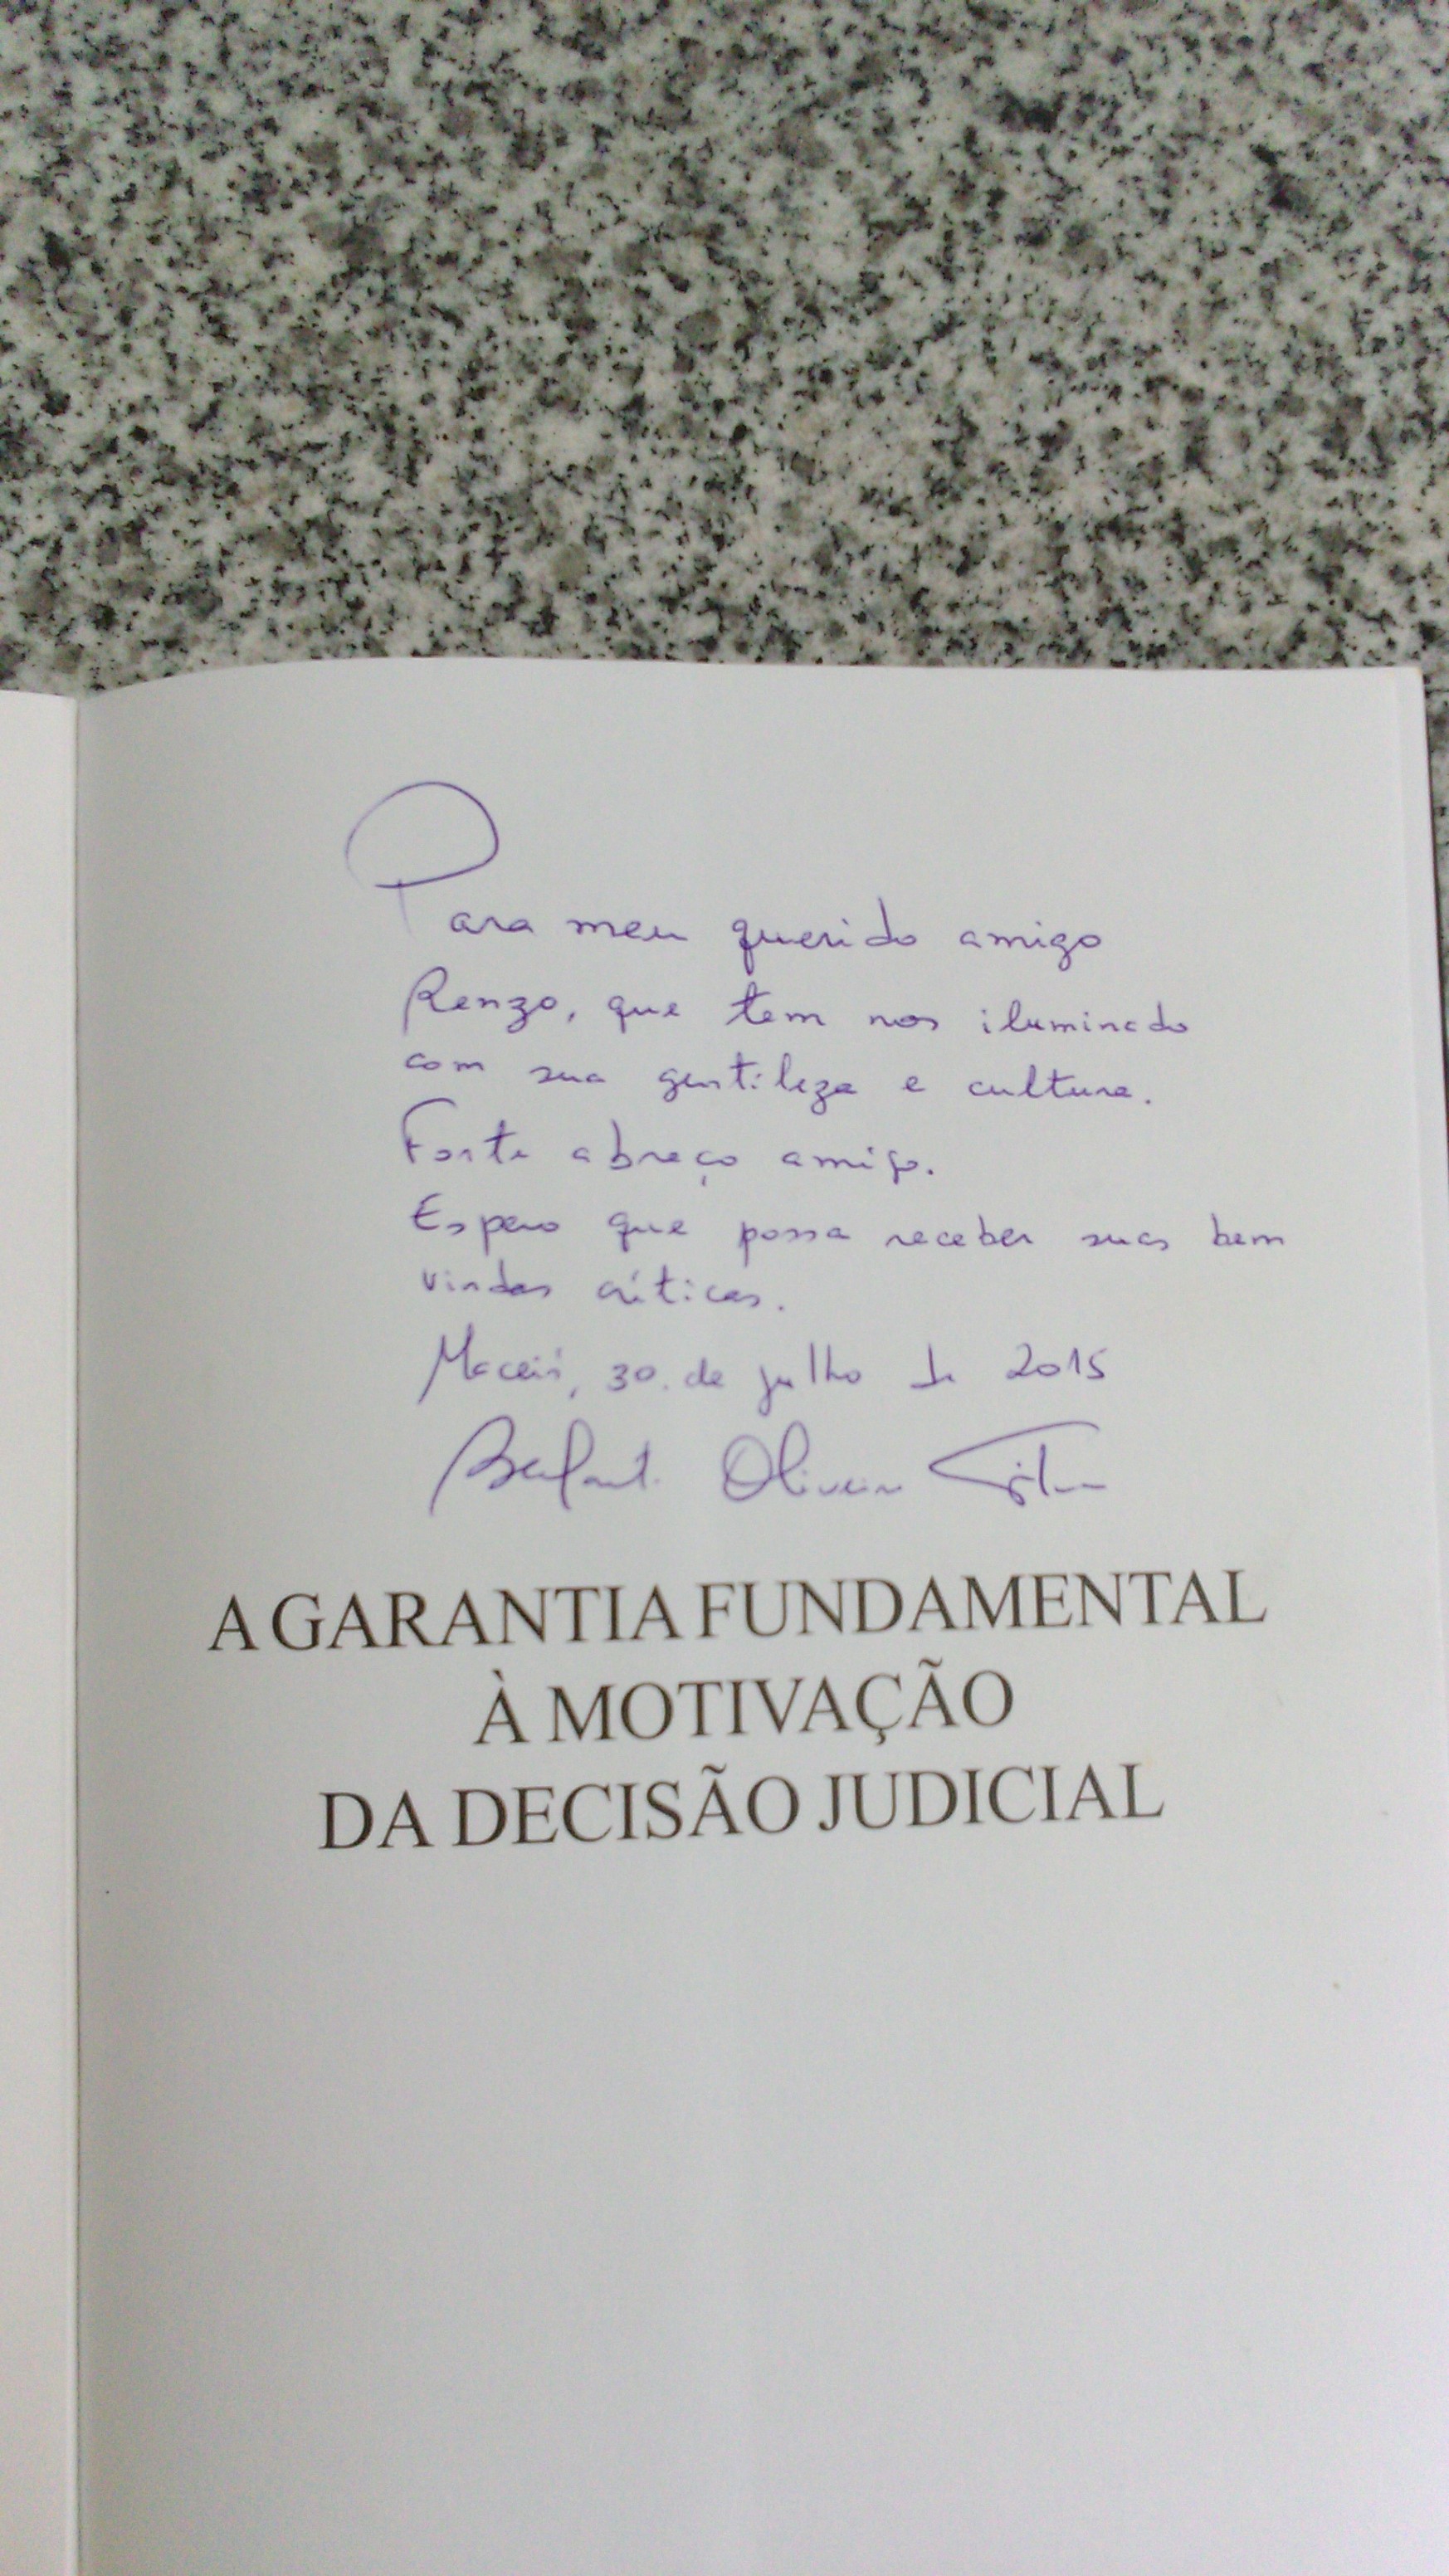 Para meu querido amigo
Renzo, que tem nos iluminado
com sua gentileza e cultura.
Forte abraço amigo.
Espero que possa receber suas bem
vindas críticas.
Maceió, 30 de julho de 2015
Oliveira Silva
A GARANTIA FUNDAMENTAL
À MOTIVAÇÃO
DA DECISÃO JUDICIAL